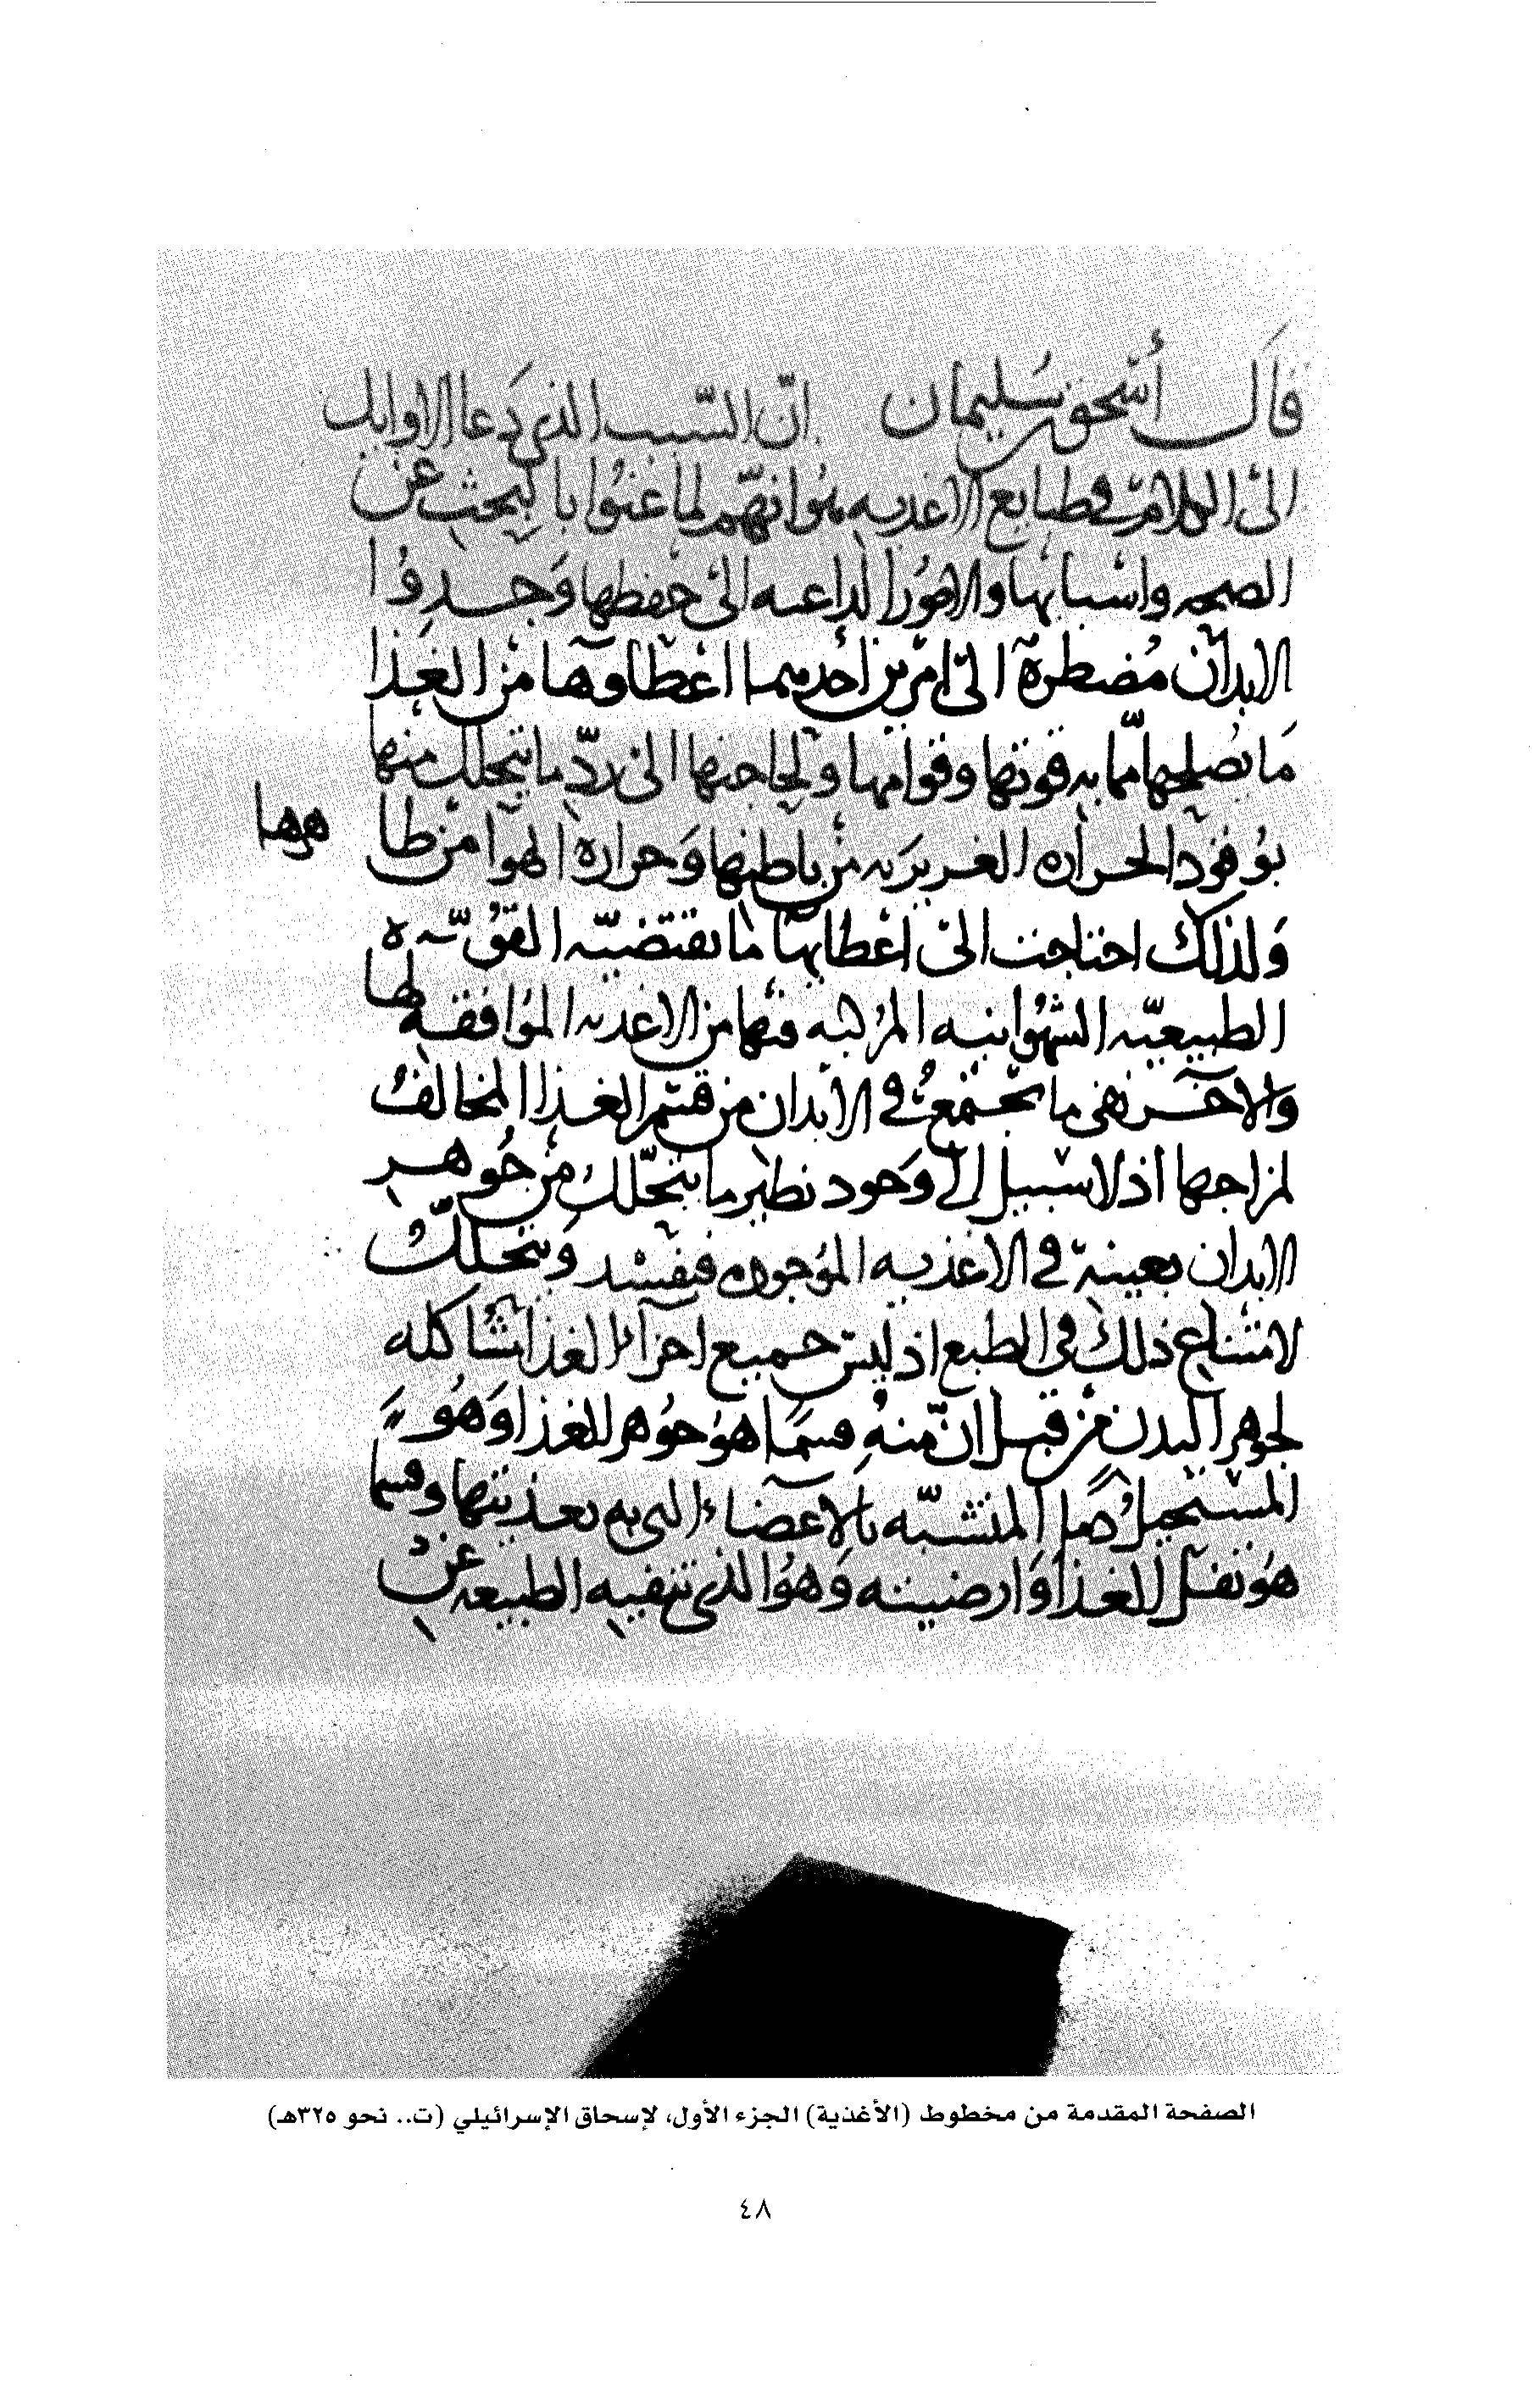 قال اسحق بن سليمان ان السّبب الذي دَعا الاوايل
الى الكلام في طبايع الاغديه هو انهّم لما عنُوا بالبحث عن
الصحه واسبابها والامُور الداعيه الى حفظها وَجدوُا
الابدان مُضطرة الى امرين أحدهما اعطاوها من الغذا
مَا يصُلحها ممّا به قوتها وقوامها ولحاجتها الى ردّ ما يتحلل منها
بوُقود الحراره الغريزيه من باطنها وَحراره الهوا من ظا
هرها
وَلذلك احتاجت الى اعطايها ما تقتضيه القوُّيه
الطبيعيّه الشهوانيه المركبه فيها من الاغديه الموُافقه لها
والآخر نفى ما يجتمعُ في الابدان من قسم الغذا المخالف
لمزاجها اذ لا سبيل الى وَجود نظير ما يتحّلل من جوُهر
الابدان بعينة في الاغذيه الموُجوده فيفسد وَيتحلل
لامتناع ذلك في الطبع اذ ليس جميع اجزآء الغذا مشاكله
لجوهر البدن من قبل انّ منه قسمًا هوُ جوُهر للغذا وَهوُ
المستحيل دمًا المتشبّه بالآعضاء التي به تغذيتها وقسما
هوُ ثفل للغذا وَارضيته وَهوُ الذي تنفيه الطبيعه عن
الصفحة المقدمة من مخطوط (الأغذية) الجزء الأول، لإسحاق الإسرائيلي (ت.. نحو ٣٢٥هـ)
٤٨